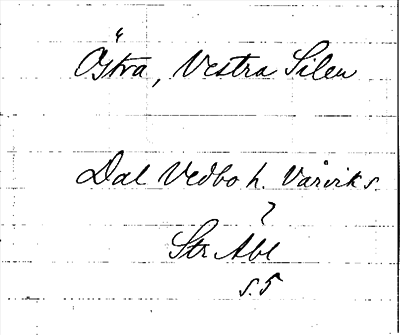 Östra, Vestra Silen
Dal Vedbo h. Vårviks.
?
Str Åbl
s. 5